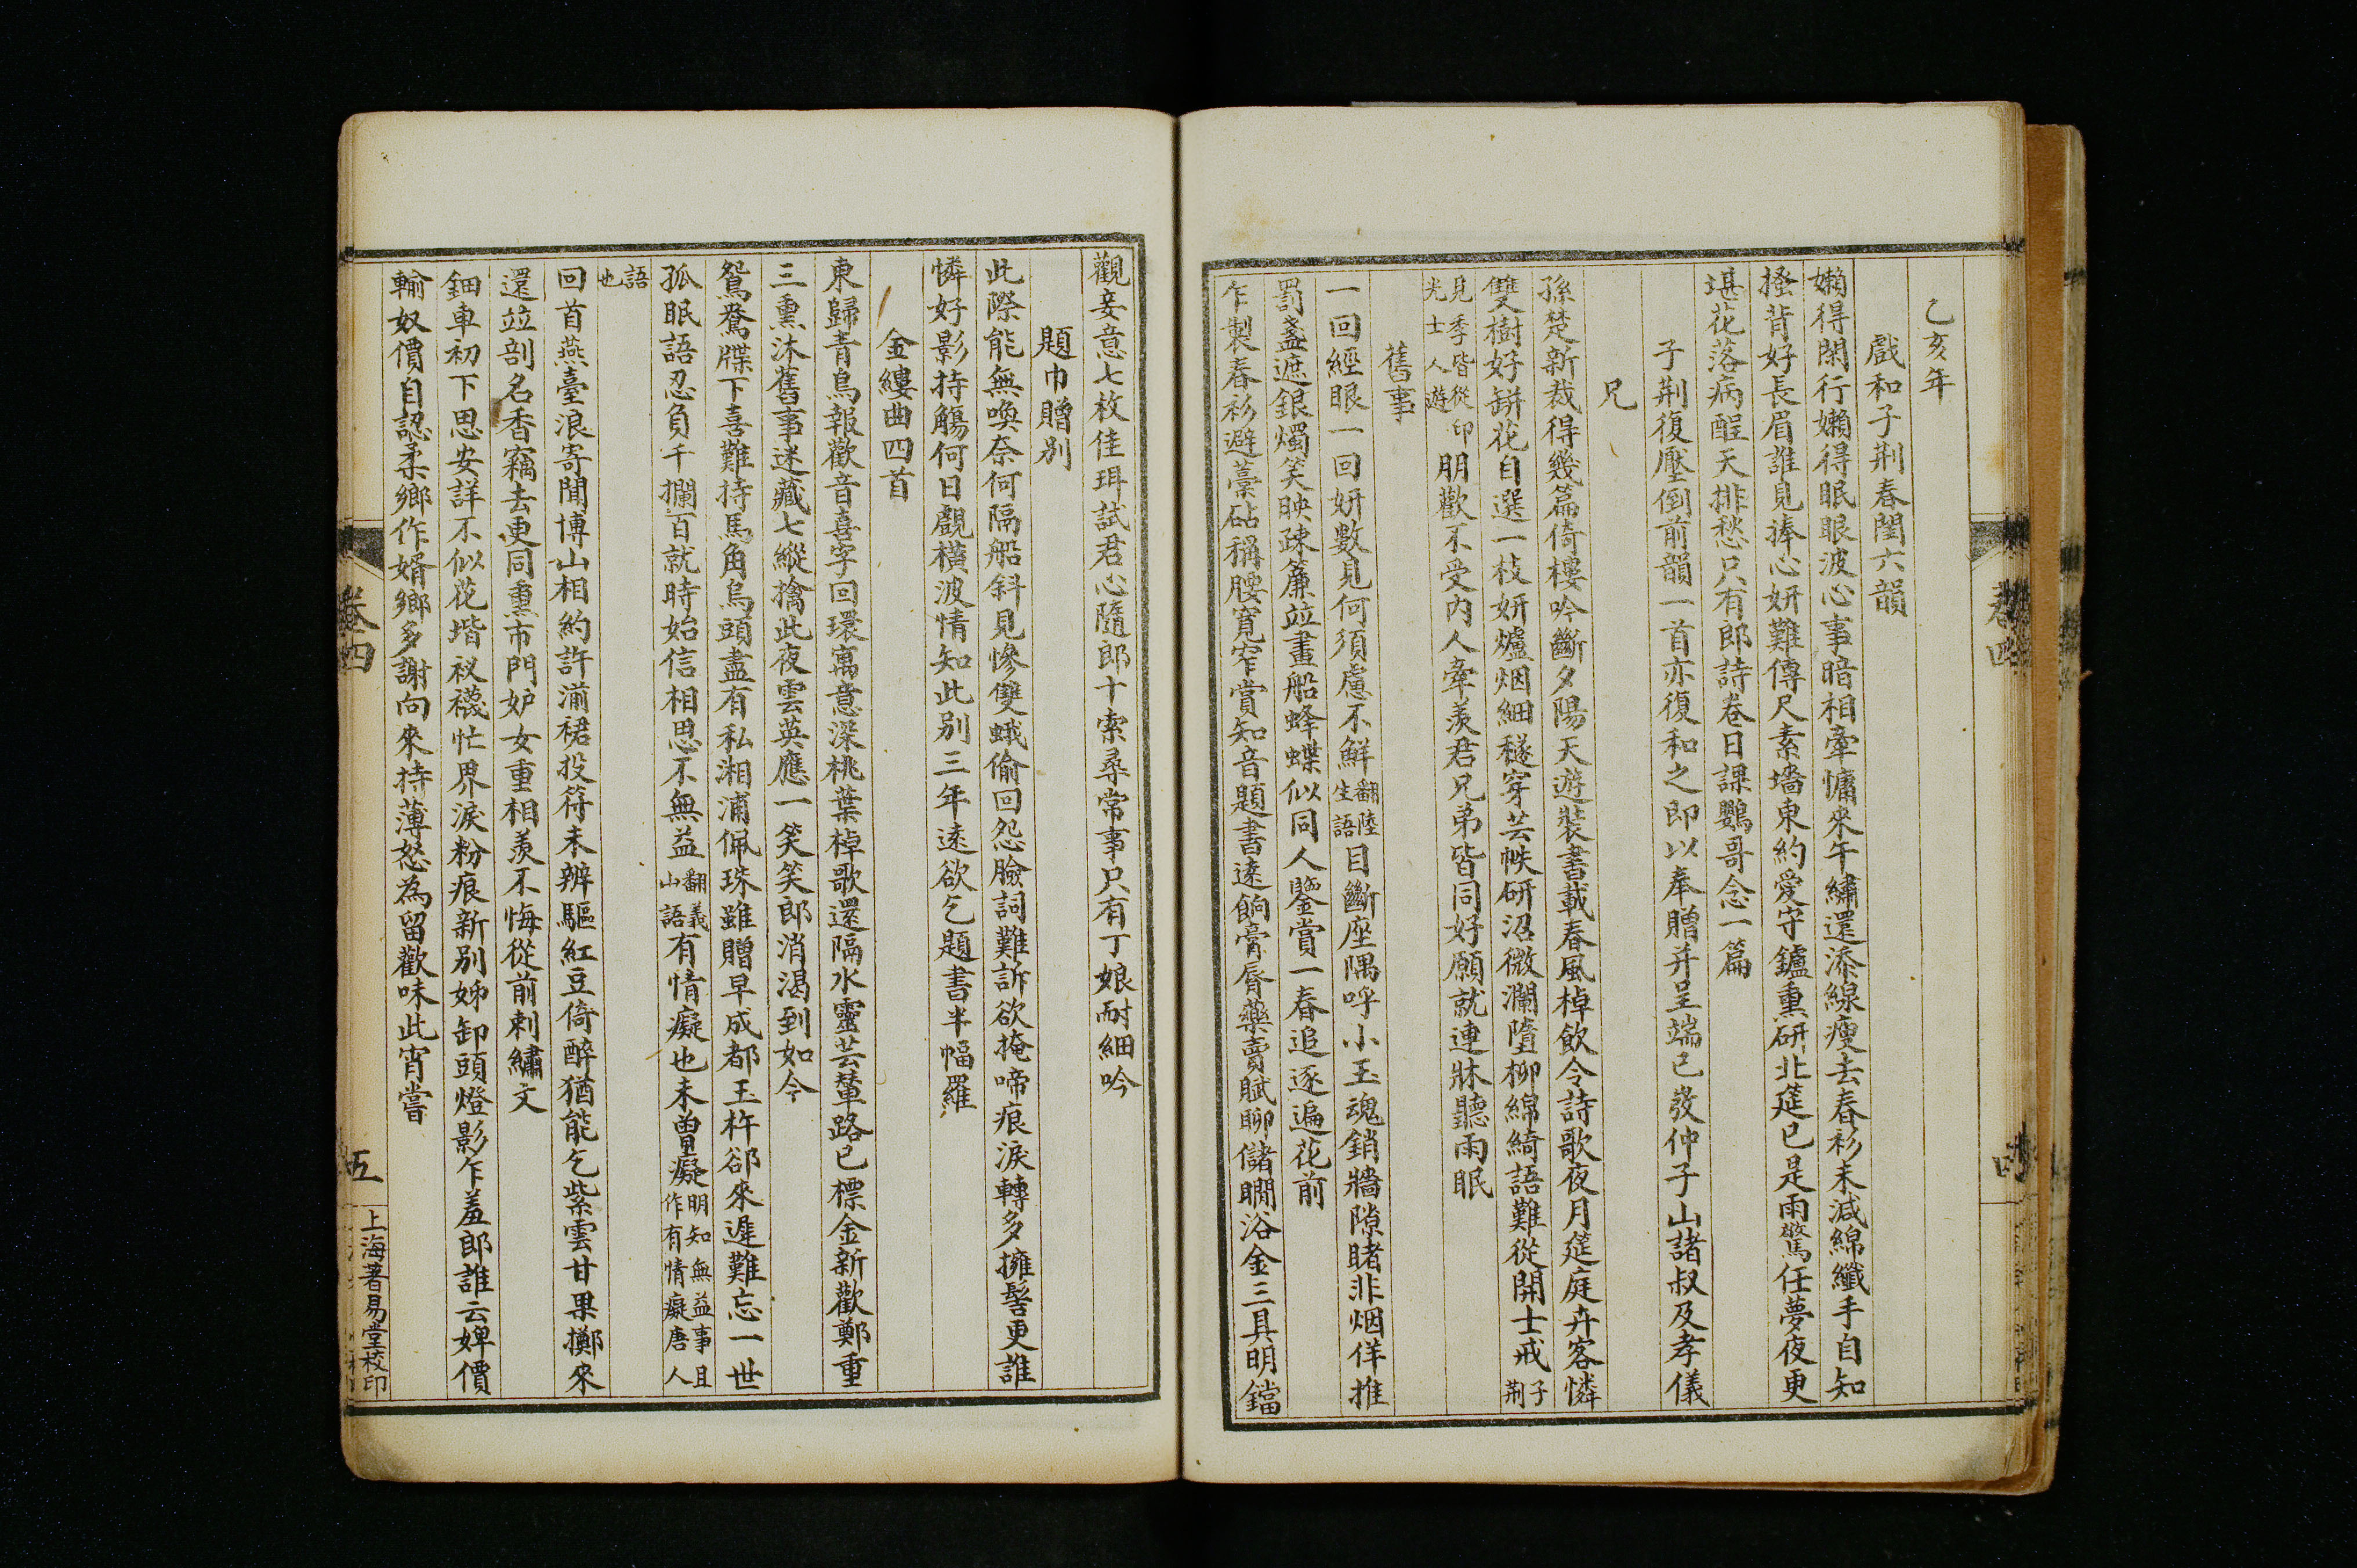 乙亥年
戲和子荆春閨六韻
嬾得閑行嬾得眠眼波心事暗相牽慵來午繡還添線瘦去春衫未減綿纖手自知
搔背好長眉誰見捧心妍難傳尺素墻東約愛守鑪熏研北筵已是雨驚任夢夜更
堪花落病酲天排愁只有郎詩卷日課鸚哥念一篇
子荆復壓倒前韻一首亦復和之即以奉贈并呈端已發仲子山諸叔及孝儀
兄
孫楚新裁得幾篇倚樓吟斷夕陽天遊裝書載春風棹飲令詩歌夜月筵庭卉客憐
雙樹好缾花自選一枝妍爐烟細穟穿芸帙研沼微瀾墮柳綿綺語難從開士戒子荆
見季皆從印光士人人遊朋歡不受內人牽羨君兄弟皆同好願就連牀聽雨眠
舊事
一回經眼一回妍數見何須慮不鮮翻陸生語目斷座隅呼小玉魂銷牆隙睹非烟佯推
罰盞遮銀燭笑映疎簾竝畫船蜂蝶似同人鑒賞一春追逐遍花前
乍製春衫避藁砧稱腰寬窄賞知音題書遠餉膏脣藥賣賦聊儲瞷浴金三具明鐺
卷四
觀妾意七枚佳珥試君心隨郎十索尋常事只有丁娘耐細吟
題巾贈別
此際能無喚奈何隔船斜見慘雙蛾偷回怨臉詞難訴欲掩啼痕淚轉多擁髻更誰
憐好影持觴何日覷橫波情知此別三年遠欲乞題書半幅羅
金縷曲四首
東歸青鳥報歡音喜字回環寓意深桃葉棹歌還隔水靈芸輦路已標金新歡鄭重
三熏沐舊事迷藏七縱擒此夜雲英應一笑笑郎消渴到如今
鴛鴦牒下喜難持馬角烏頭盡有私湘浦佩珠雖贈早成都玉杵卻來遲難忘一世
孤眠語忍負千攔百就時始信相思不無益翻義山語有情癡也未曾癡明知無益事且作有情癡唐人
語也
回首燕臺浪寄聞博山相約許湔裙投符未辨驅紅豆倚醉猶能乞紫雲甘果擲來
還竝剖名香竊去更同熏市門妒女重相羨不悔從前刺繡文
鈿車初下思安詳不似花堦衩襪忙界淚粉痕新別姊卸頭燈影乍羞郎誰云婢價
輸奴價自認柔鄉作婿鄉多謝向來持薄怒為留歡味此宵嘗
卷四
五
上海著易堂校印